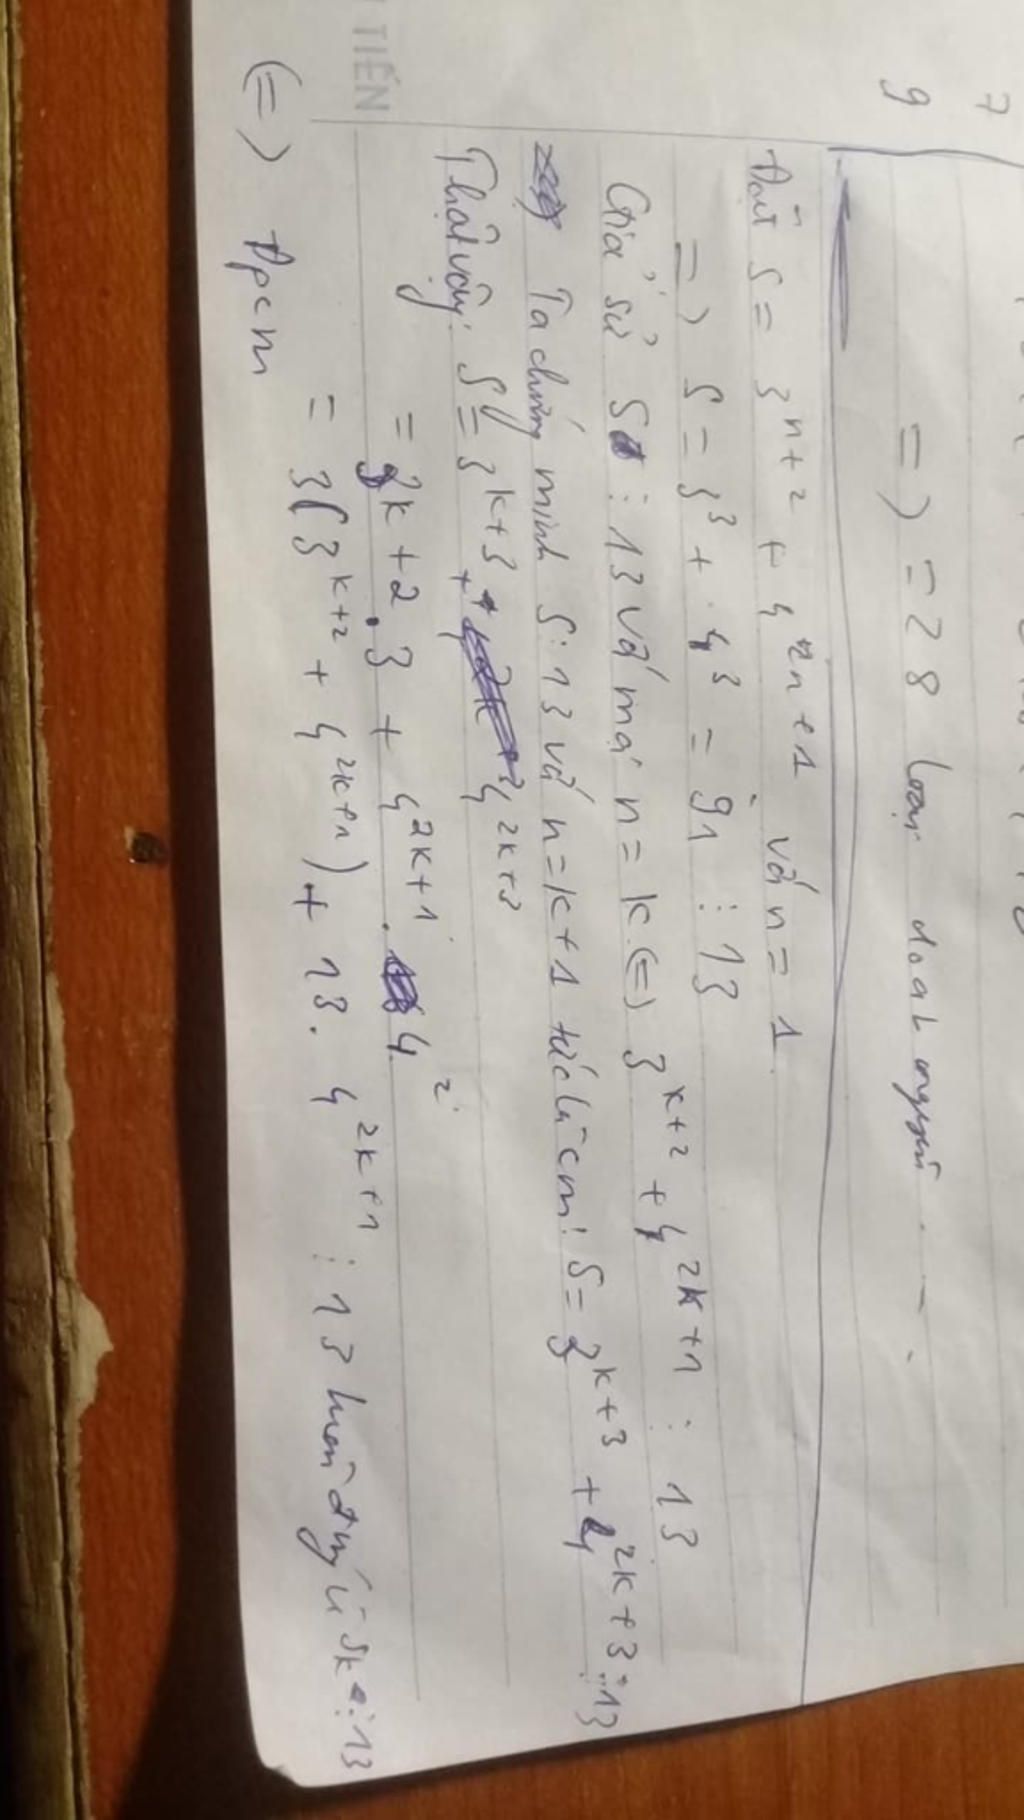 7
9
=) = 28 loại
Đặt S = 3^{n+2} + 4^{2n+1} với n = 1
=) S = 3^3 + 4^3 = 91 ⋮ 13
Giả sử S ⋮ 13 với mọi n = k (=) 3^{k+2} + 4^{2k+1} ⋮ 13
Ta chứng minh S ⋮ 13 với n = k+1 tức là cm: S = 3^{k+3} + 4^{2k+3} ⋮ 13
Thật vậy: S = 3^{k+3} + 4^{2k+3}
= 3^{k+2} . 3 + 4^{2k+1} . 4^2
= 3(3^{k+2} + 4^{2k+1}) + 13. 4^{2k+1} ⋮ 13 luôn đúng vì Sk ⋮ 13
(=) Đpcm
TIẾN